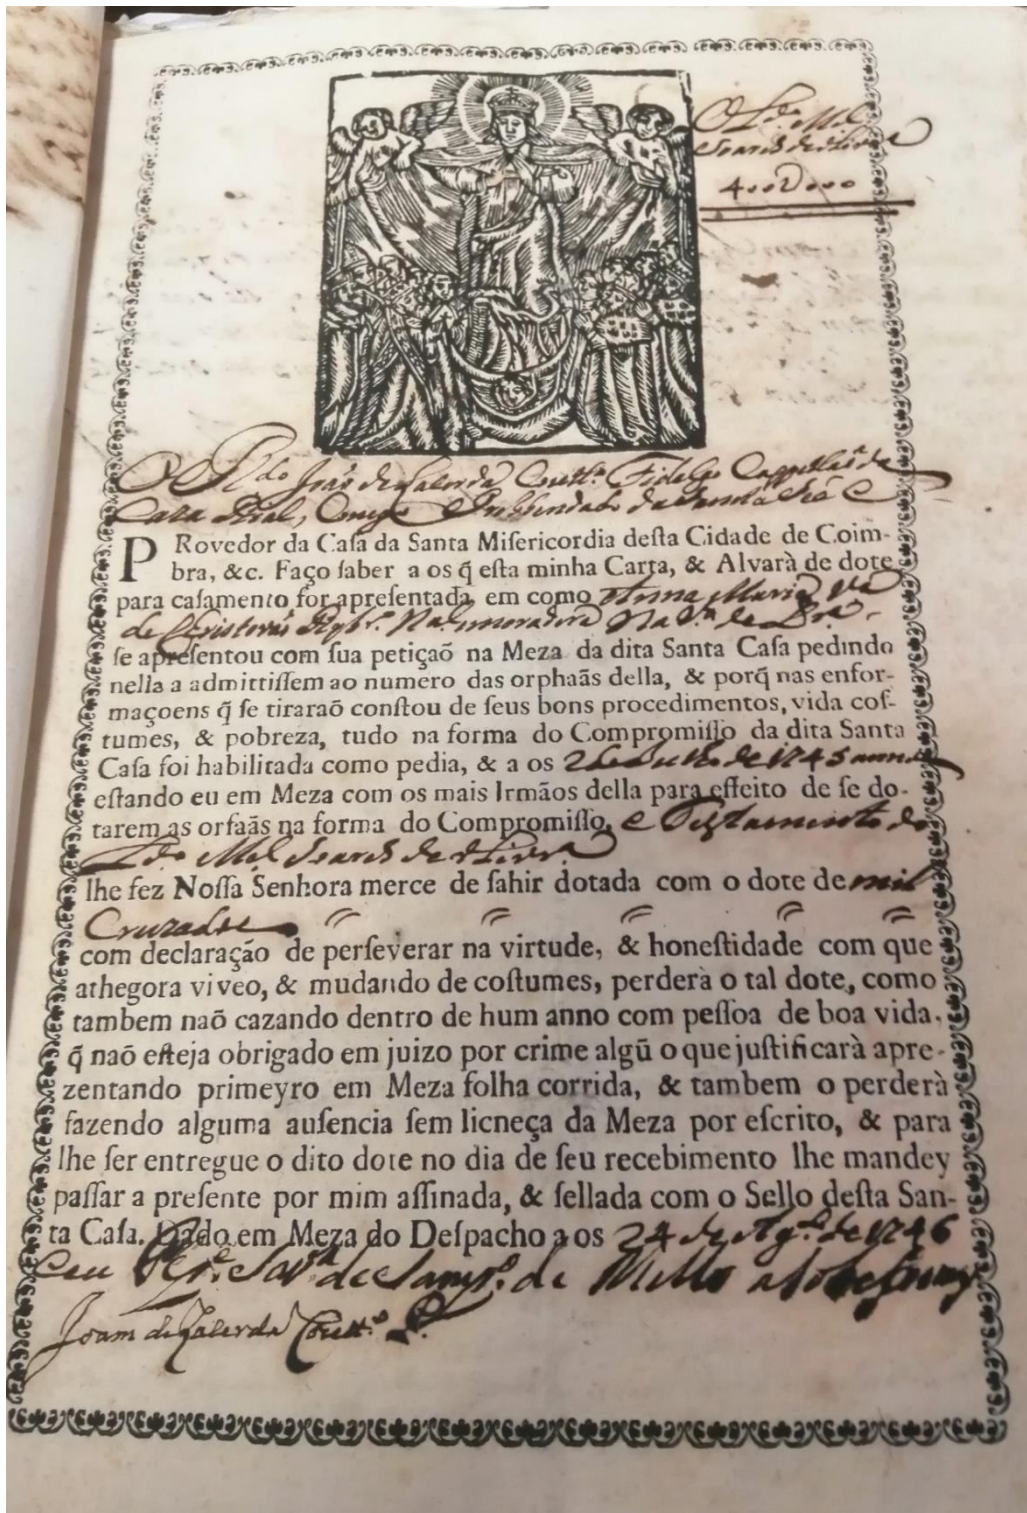 O Ldo Mel
Soares de Olivra
400U000
O Rdo João de Lacerda Couttº Fidalgo Cappellão da
Caza Real, Conego Prebendado da Santa Sé e
PRovedor da Caſa da Santa Miſericordia deſta Cidade de Coim-
bra, &c. Faço ſaber a os q̃ eſta minha Carta, & Alvarà de dote
para caſamento for apreſentada, em como Anna Maria
de
ſe apreſentou com ſua petiçaõ na Meza da dita Santa Caſa pedindo
nella a admittiſſem ao numero das orphaãs della, & porq̃ nas enfor-
maçoens q̃ ſe tiraraõ conſtou de ſeus bons procedimentos, vida coſ-
tumes, & pobreza, tudo na forma do Compromiſſo da dita Santa
Caſa foi habilitada como pedia, & a os 2 de Julho de 1745
eſtando eu em Meza com os mais Irmãos della para effeito de ſe do-
tarem as orfaãs na forma do Compromiſſo, e Testamento do
Ldo Mel Soares de Olivrª
lhe fez Noſſa Senhora merce de ſahir dotada com o dote de mil
Cruzados
com declaração de perſeverar na virtude, & honeſtidade com que
athegora viveo, & mudando de coſtumes, perderà o tal dote, como
tambem naõ cazando dentro de hum anno com peſſoa de boa vida,
q̃ naõ eſteja obrigado em juizo por crime algũ o que juſtificarà apre-
zentando primeyro em Meza folha corrida, & tambem o perderà
fazendo alguma auſencia ſem licneça da Meza por eſcrito, & para
lhe ſer entregue o dito dote no dia de ſeu recebimento lhe mandey
paſſar a preſente por mim aſſinada, & ſellada com o Sello deſta San-
ta Caſa. Dado em Meza do Deſpacho a os 24 de Agº de 1746
de Mello
Joam de Lacerda Couttº P.